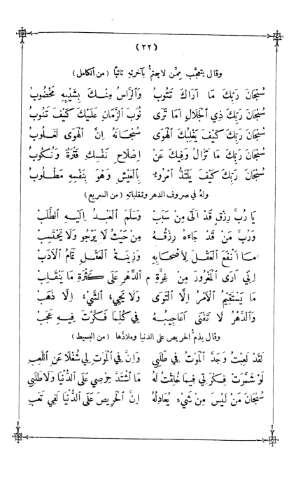 (٢٢)
وقال يتعجب ممن لا يهتم بآخرته تائبا (من الكامل)
سُبْحَانَ رَبِّكَ مَا أَرَاكَ تَتُوبُ وَٱلرَّأْسُ مِنْكَ بِشَيْبِهِ مَخْضُوبُ
سُبْحَانَ رَبِّكَ ذِي ٱلْجَلَالِ أَمَا تَرَى نُوَبَ ٱلزَّمَانِ عَلَيْكَ كَيْفَ تَنُوبُ
سُبْحَانَ رَبِّكَ كَيْفَ يَغْلِبُكَ ٱلْهَوَى سُبْحَانَهُ إِنَّ ٱلْهَوَى لَغَلُوبُ
سُبْحَانَ رَبِّكَ مَا تَزَالُ وَفِيكَ عَنْ إِصْلَاحِ نَفْسِكَ فَتْرَةٌ وَنُكُوبُ
سُبْحَانَ رَبِّكَ كَيْفَ يَلْتَذُّ ٱمْرُؤٌ بِٱلْعَيْشِ وَهْوَ بِنَفْسِهِ مَطْلُوبُ
وله في صروف الدهر وتقلباته (من السريع)
يَا رُبَّ رِزْقٍ قَدْ أَتَى مِنْ سَبَبْ وَسَلَّمَ ٱلْعَبْدُ إِلَيْهِ ٱلطَّلَبْ
وَرُبَّ مَنْ قَدْ جَاءَهُ رِزْقُهُ مِنْ حَيْثُ لَا يَرْجُو وَلَا يَحْتَسِبْ
مَا أَنْفَعَ ٱلْعَقْلَ لِأَصْحَابِهِ وَزِينَةُ ٱلْعَقْلِ تَمَامُ ٱلْأَدَبْ
إِنِّي أَرَى ٱلْمَغْرُورَ مِنْ غِرَّةِ م ٱلدَّهْرِ عَلَى كَثْرَةِ مَا يَنْقَلِبْ
مَا يَسْتَقِيمُ ٱلْأَمْرُ إِلَّا ٱلْتَوَى وَلَا يَجِيءُ ٱلشَّيْءُ إِلَّا ذَهَبْ
وَٱلدَّهْرُ لَا تَفْنَى أَعَاجِيبُهُ فِي كُلِّ مَا فَكَّرْتَ فِيهِ عَجَبْ
وقال يذم الحريص على الدنيا وملاذها (من البسيط)
لَقَدْ لَعِبْتُ وَجَدَّ ٱلْمَوْتُ فِي طَلَبِي وَإِنَّ فِي ٱلْمَوْتِ لِي شُغْلًا عَنِ ٱللَّعِبِ
لَوْ شَمَّرَتْ فِكْرَتِي فِيمَا خُلِقْتُ لَهُ مَا ٱشْتَدَّ حِرْصِي عَلَى ٱلدُّنْيَا وَلَا طَلَبِي
سُبْحَانَ مَنْ لَيْسَ مِنْ شَيْءٍ يُعَادِلُهُ إِنَّ ٱلْحَرِيصَ عَلَى ٱلدُّنْيَا لَفِي تَعَبِ